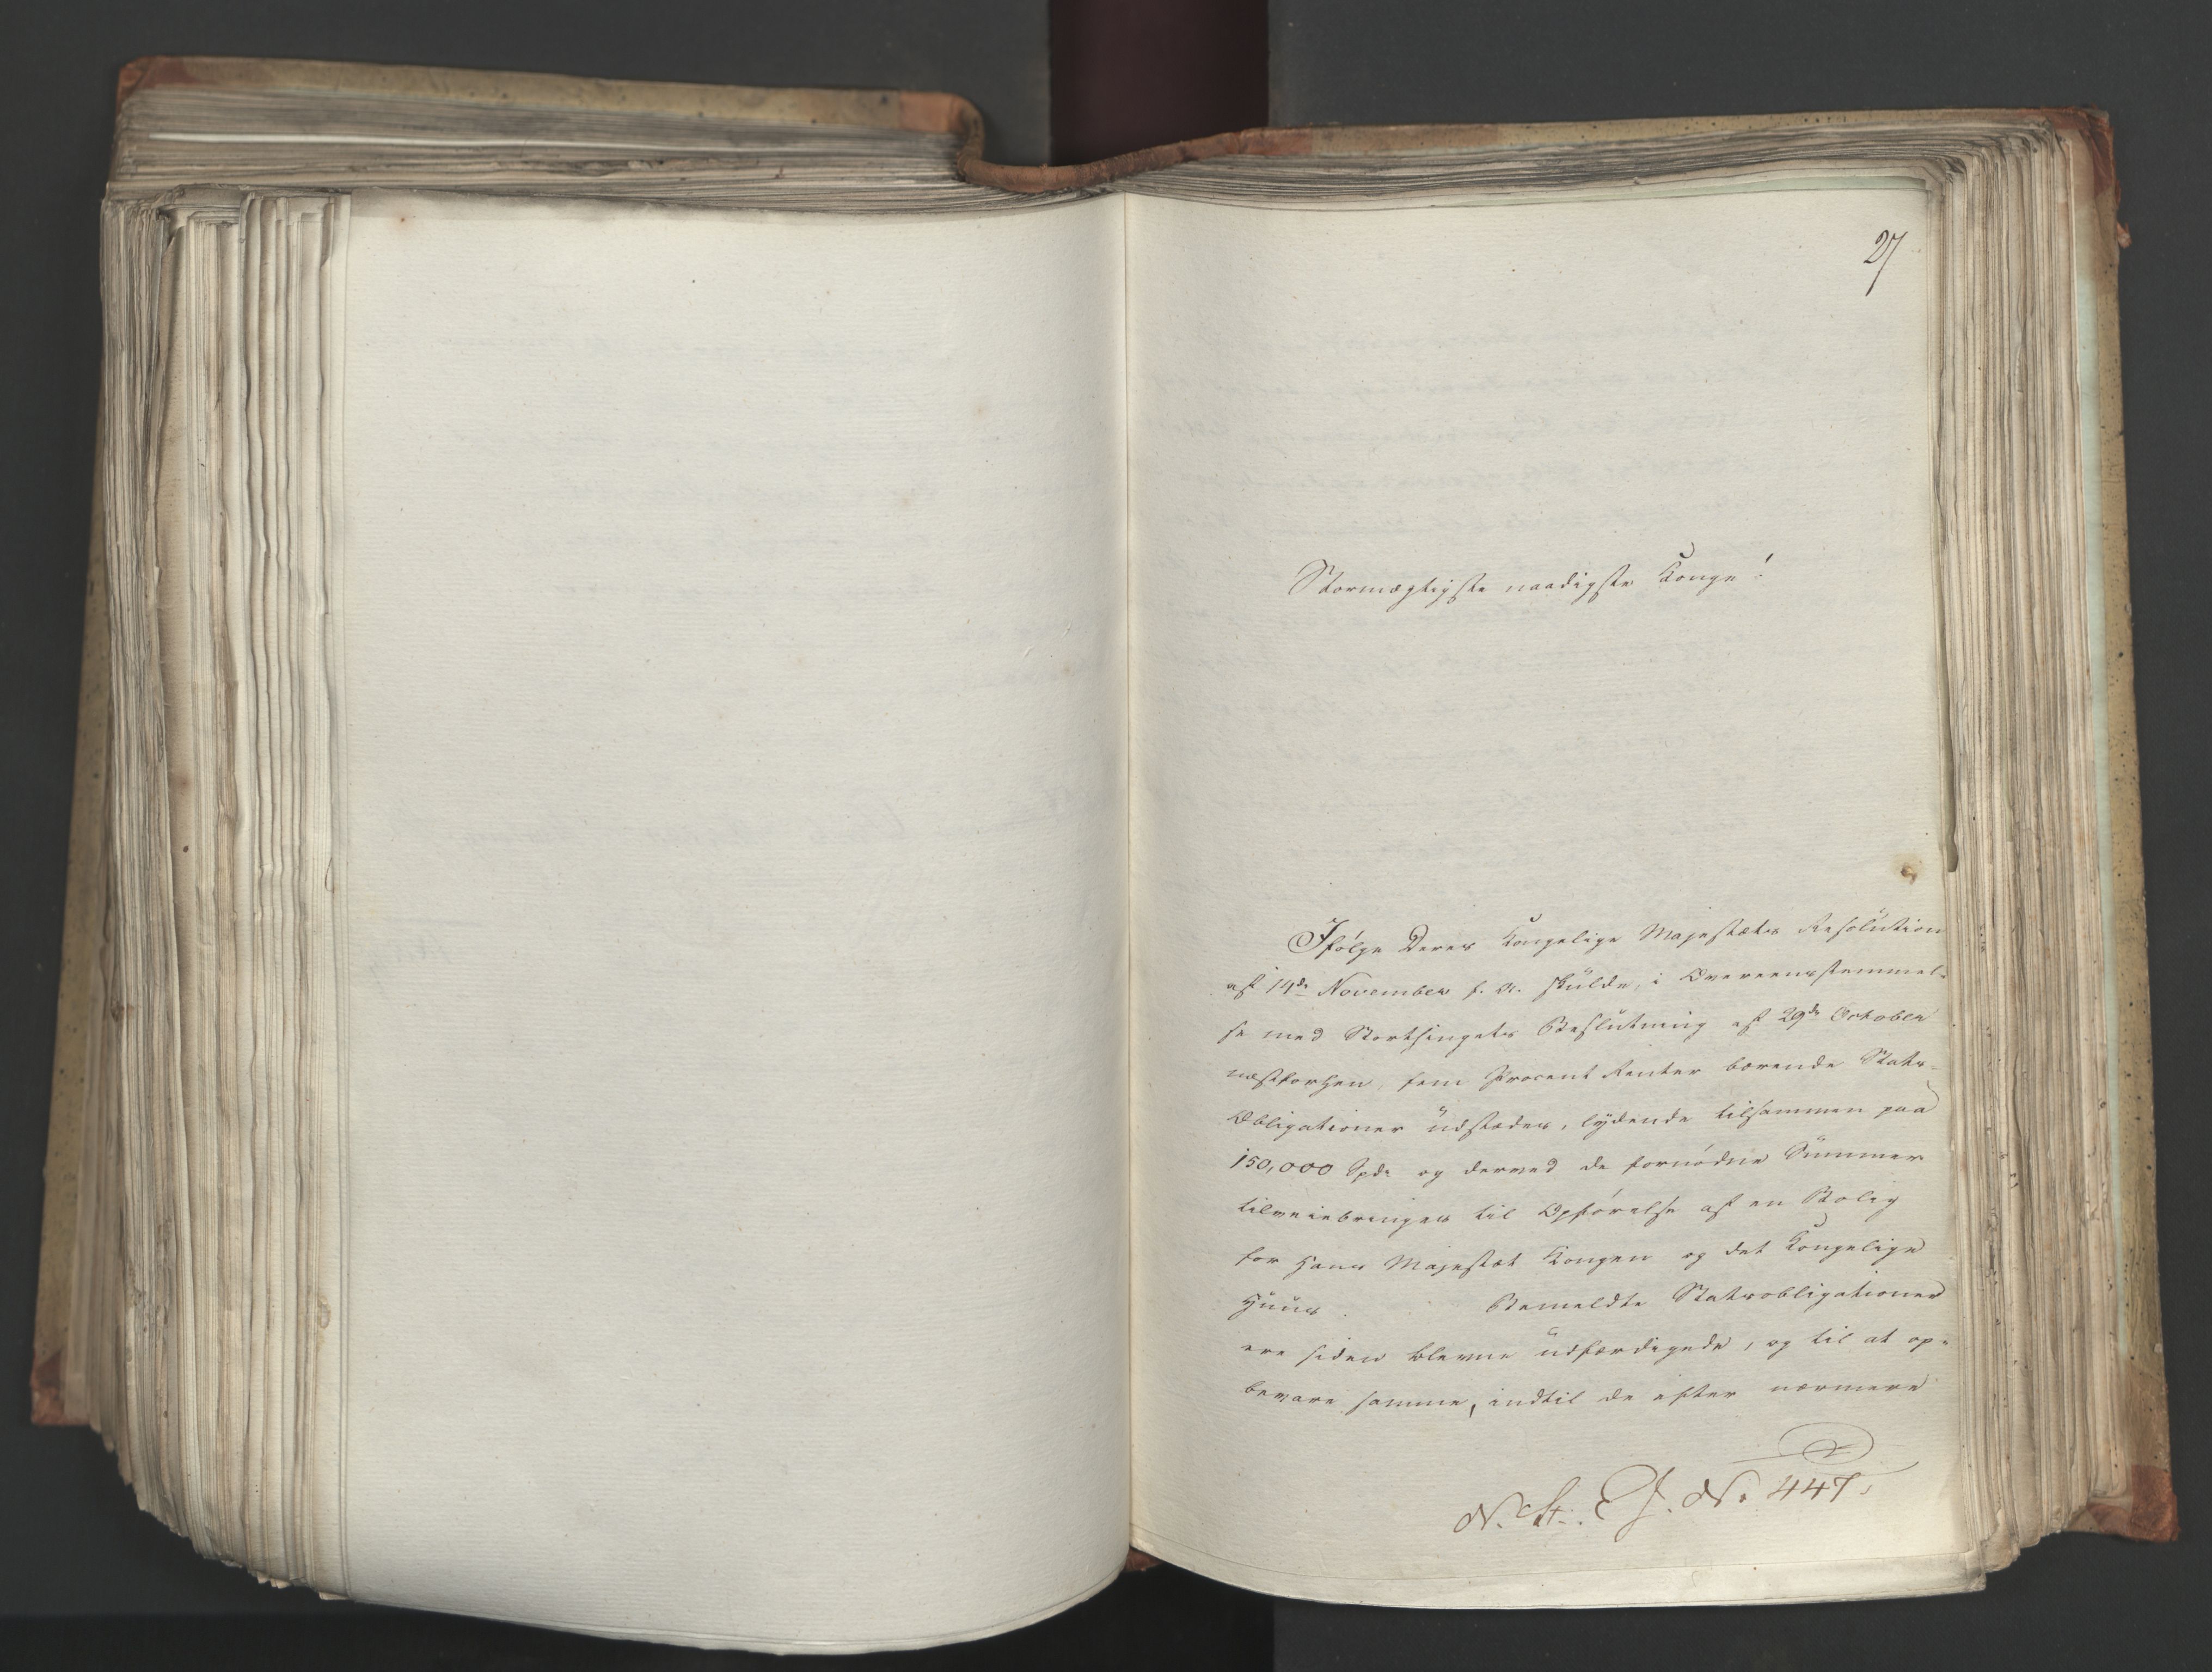 27
Stormægtigste naadigste Konge!
Ifølge Deres Kongelige Majestæts Resolution
af 14de November f. A. skulde, i Overeensstemmel-
se med Storthingets Beslutning af 29de October
næstforhen, fem Procent Renter bærende Stats-
Obligationer udstædes, lydende tilsammen paa
150,000 Spd. og derved de fornødne Summer
tilveiebringes til Opførelse af en Bolig
for Hans Majestæt Kongen og det Kongelige
Huus. Bemeldte Statsobligationer
ere siden blevne udfærdigede, og til at op-
bevare samme, indtil de efter nærmere
N. St. E. J. No 447.